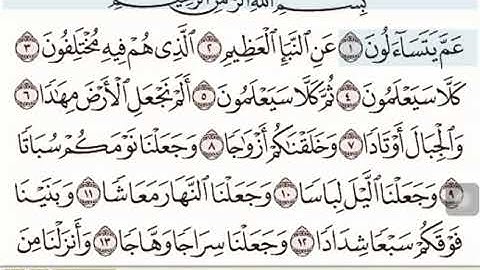 بِسْمِ اللَّهِ الرَّحْمَنِ الرَّحِيمِ
عَمَّ يَتَسَآءَلُونَ ١ عَنِ ٱلنَّبَإِ ٱلْعَظِيمِ ٢ ٱلَّذِى هُمْ فِيهِ مُخْتَلِفُونَ ٣
كَلَّا سَيَعْلَمُونَ ٤ ثُمَّ كَلَّا سَيَعْلَمُونَ ٥ أَلَمْ نَجْعَلِ ٱلْأَرْضَ مِهَٰدًا ٦
وَٱلْجِبَالَ أَوْتَادًا ٧ وَخَلَقْنَٰكُمْ أَزْوَٰجًا ٨ وَجَعَلْنَا نَوْمَكُمْ سُبَاتًا
٩ وَجَعَلْنَا ٱلَّيْلَ لِبَاسًا ١٠ وَجَعَلْنَا ٱلنَّهَارَ مَعَاشًا ١١ وَبَنَيْنَا
فَوْقَكُمْ سَبْعًا شِدَادًا ١٢ وَجَعَلْنَا سِرَاجًا وَهَّاجًا ١٣ وَأَنزَلْنَا مِنَ